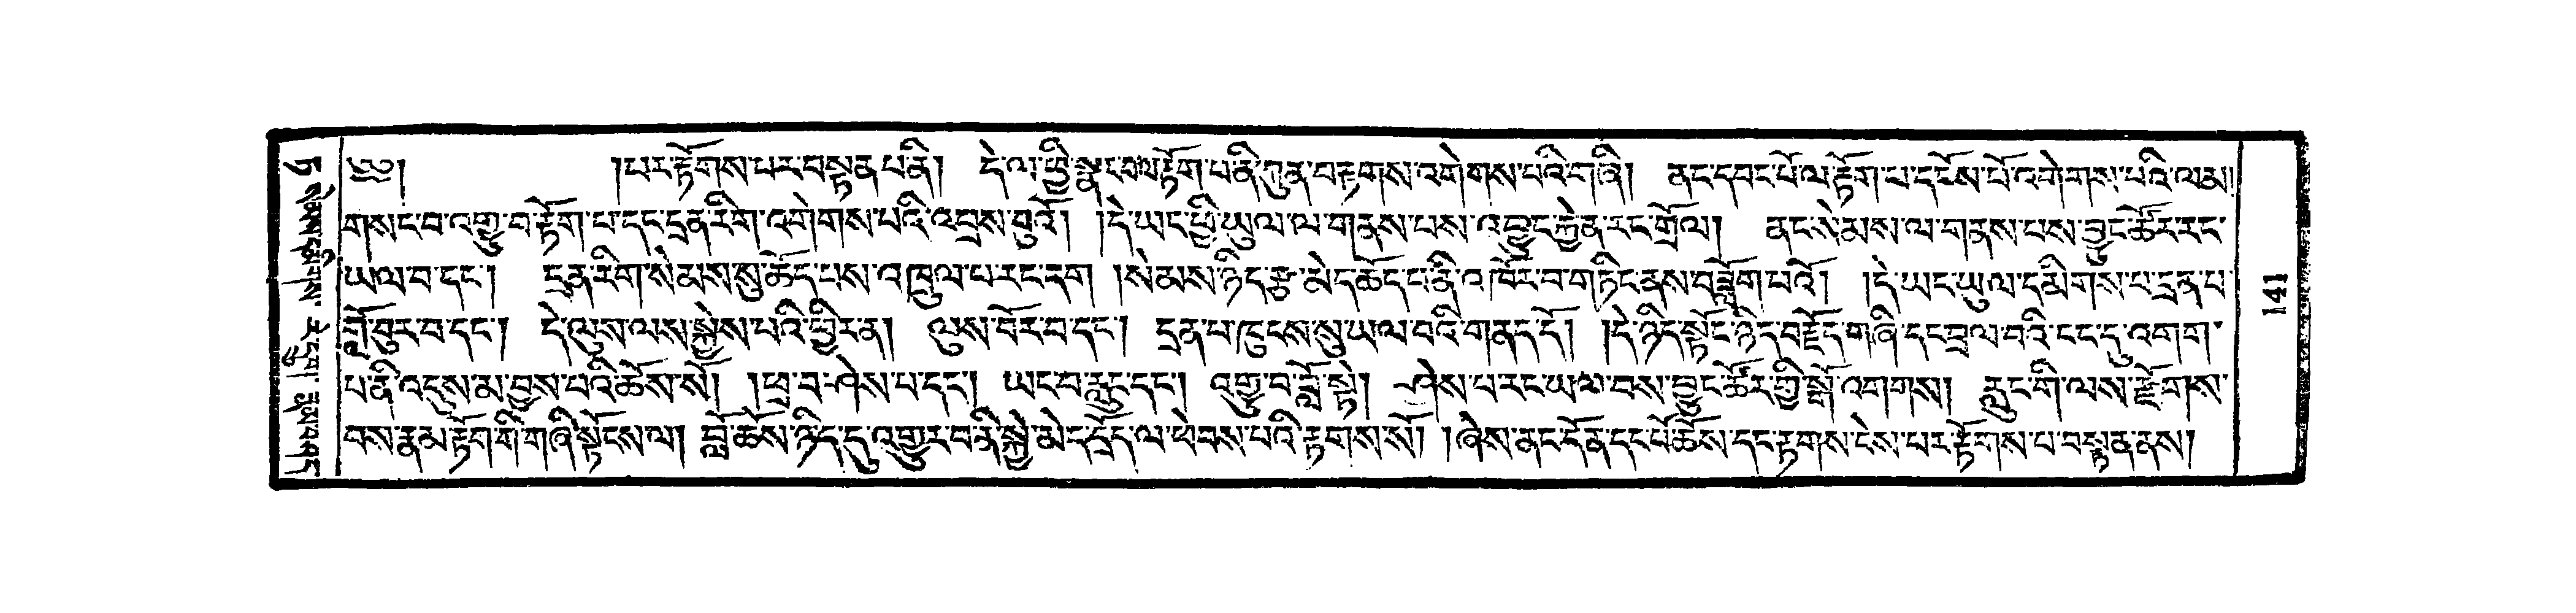 ༄༅། །པར་རྟོགས་པར་བསྟན་པ་ནི། དེ་ལ་ཕྱི་སྣང་བལ་རྟོག་པ་ནི་ཀུན་བརྟགས་འགེགས་པའི་གཞི། ནང་དབང་པོ་ལ་རྟོག་པ་དངོས་པོ་འགེགས་པའི་ལམ།
གསང་བ་འགྱུ་བ་རྟོག་པ་དང་དྲན་རིག་འགེགས་པའི་འབྲས་བུའོ། །དེ་ཡང་ཕྱི་ཡུལ་ལ་གནས་པས་འབྱུང་རྐྱེན་རང་གྲོལ། ནང་སེམས་ལ་གནས་པས་བྱུང་ཚོར་རང་
ཡལ་བ་དང་། དྲན་རིག་སེམས་སུ་ཆོད་པས་འཁྲུལ་པ་རང་དག །སེམས་ཉིད་རྩ་མེད་ཆོད་པ་ནི་འཁོར་བ་གཏིང་ནས་བཟློག་པའོ། །དེ་ཡང་ཡུལ་དམིགས་པ་དྲན་པ་
བློ་བུར་བ་དང་། དེ་ལུས་ལས་སྐྱེས་པའི་ཕྱིར་ན། ལུས་བོར་བ་དང་། དྲན་པ་ཁུངས་སུ་ཡལ་བའི་གནད་དོ། །དེ་ཉིད་སྟོང་ཉིད་བརྗོད་གཞི་དང་བྲལ་བའི་ངང་དུ་འགག་
པ་ནི་འདུས་མ་བྱས་པའི་ཆོས་སོ། །ཕྲ་བ་ཤེས་པ་དང་། ཡང་བ་རླུང་དང་། འགྱུ་བ་བློ་སྟེ། ཤེས་པ་རང་ཡལ་བས་བྱུང་ཚོར་གྱི་སྒོ་འགགས། རླུང་གི་ལས་རྫོགས་
པས་རྣམ་རྟོག་གི་གཞི་སྟོངས་ལ། བློ་ཆོས་ཉིད་དུ་འགྱུར་བ་ནི་སྐྱེ་མེད་དྲོད་ལ་ཕེབས་པའི་རྟགས་སོ། །ཞེས་ནང་དོན་དང་པོ་ཆོས་དང་རྟགས་ངེས་པར་རྟོགས་པ་བསྟན་ནས།